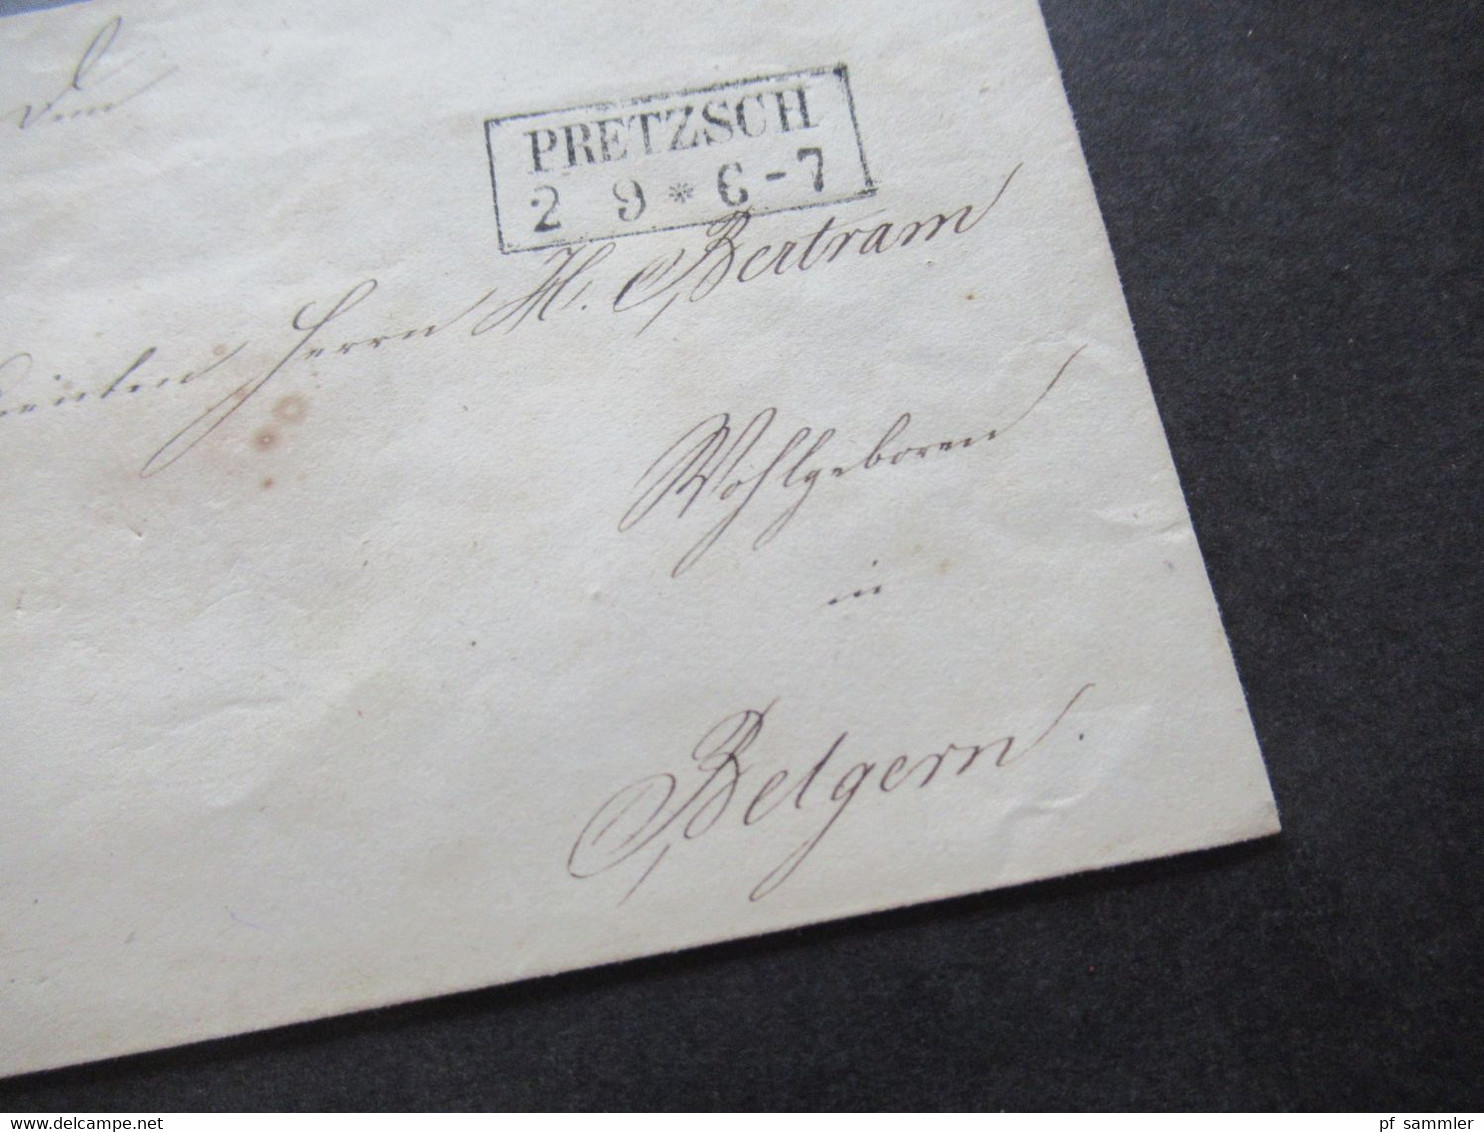 Dem
PRETZSCH
2 9 * 6-7
Herrn H. Bertram
Wohlgeboren
in
Belgern.
www.delcampe.net
pf_sammler